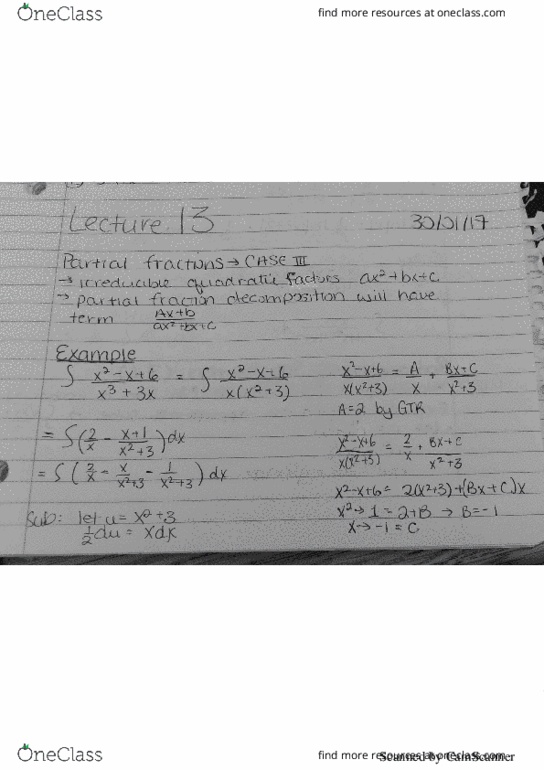 OneClass find more resources at oneclass.com
Lecture 13 30/01/17
Partial fractions → CASE III
→ irreducible quadratic factors ax²+bx+c
→ partial fraction decomposition will have
term Ax+b / ax²+bx+c
Example
∫ x²-x+6 / x³+3x = ∫ x²-x+6 / x(x²+3)
= ∫(2/x - x+1/x²+3)dx
= ∫(2/x - x/x²+3 - 1/x²+3)dx
Sub: let u = x²+3
½du = xdx
x²-x+6 / x(x²+3) = A/x + Bx+C / x²+3
A=2 by GTR
x²-x+6 / x(x²+3) = 2/x + Bx+C / x²+3
x²-x+6 = 2(x²+3)+(Bx+C)x
x²→ 1 = 2+B → B=-1
x→ -1 = C
OneClass find more resources at oneclass.com
Scanned by CamScanner